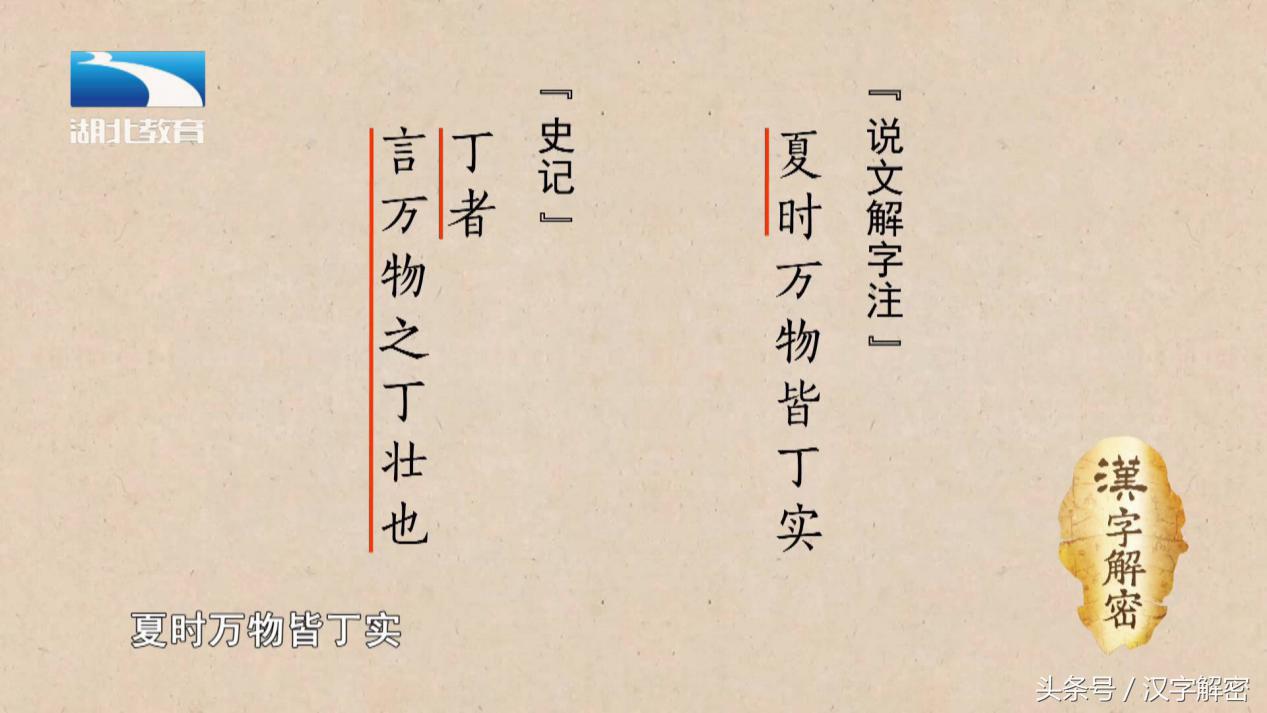 湖北教育
『说文解字注』
夏时万物皆丁实
『史记』
丁者
言万物之丁壮也
漢字解密
夏时万物皆丁实
头条号 / 汉字解密